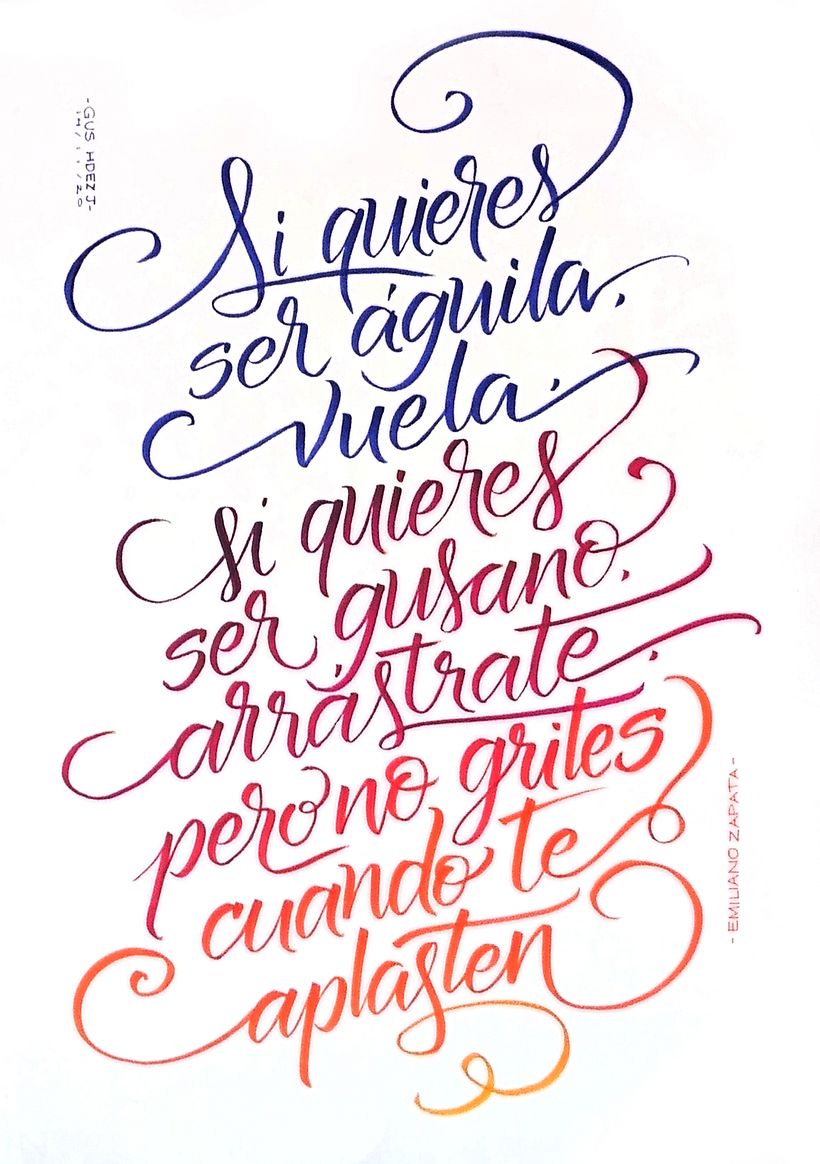 -GUS HDEZ J-
14/11/20
Si quieres
ser águila,
vuela.
si quieres
ser gusano,
arrástrate.
pero no grites
cuando te
aplasten
- EMILIANO ZAPATA -